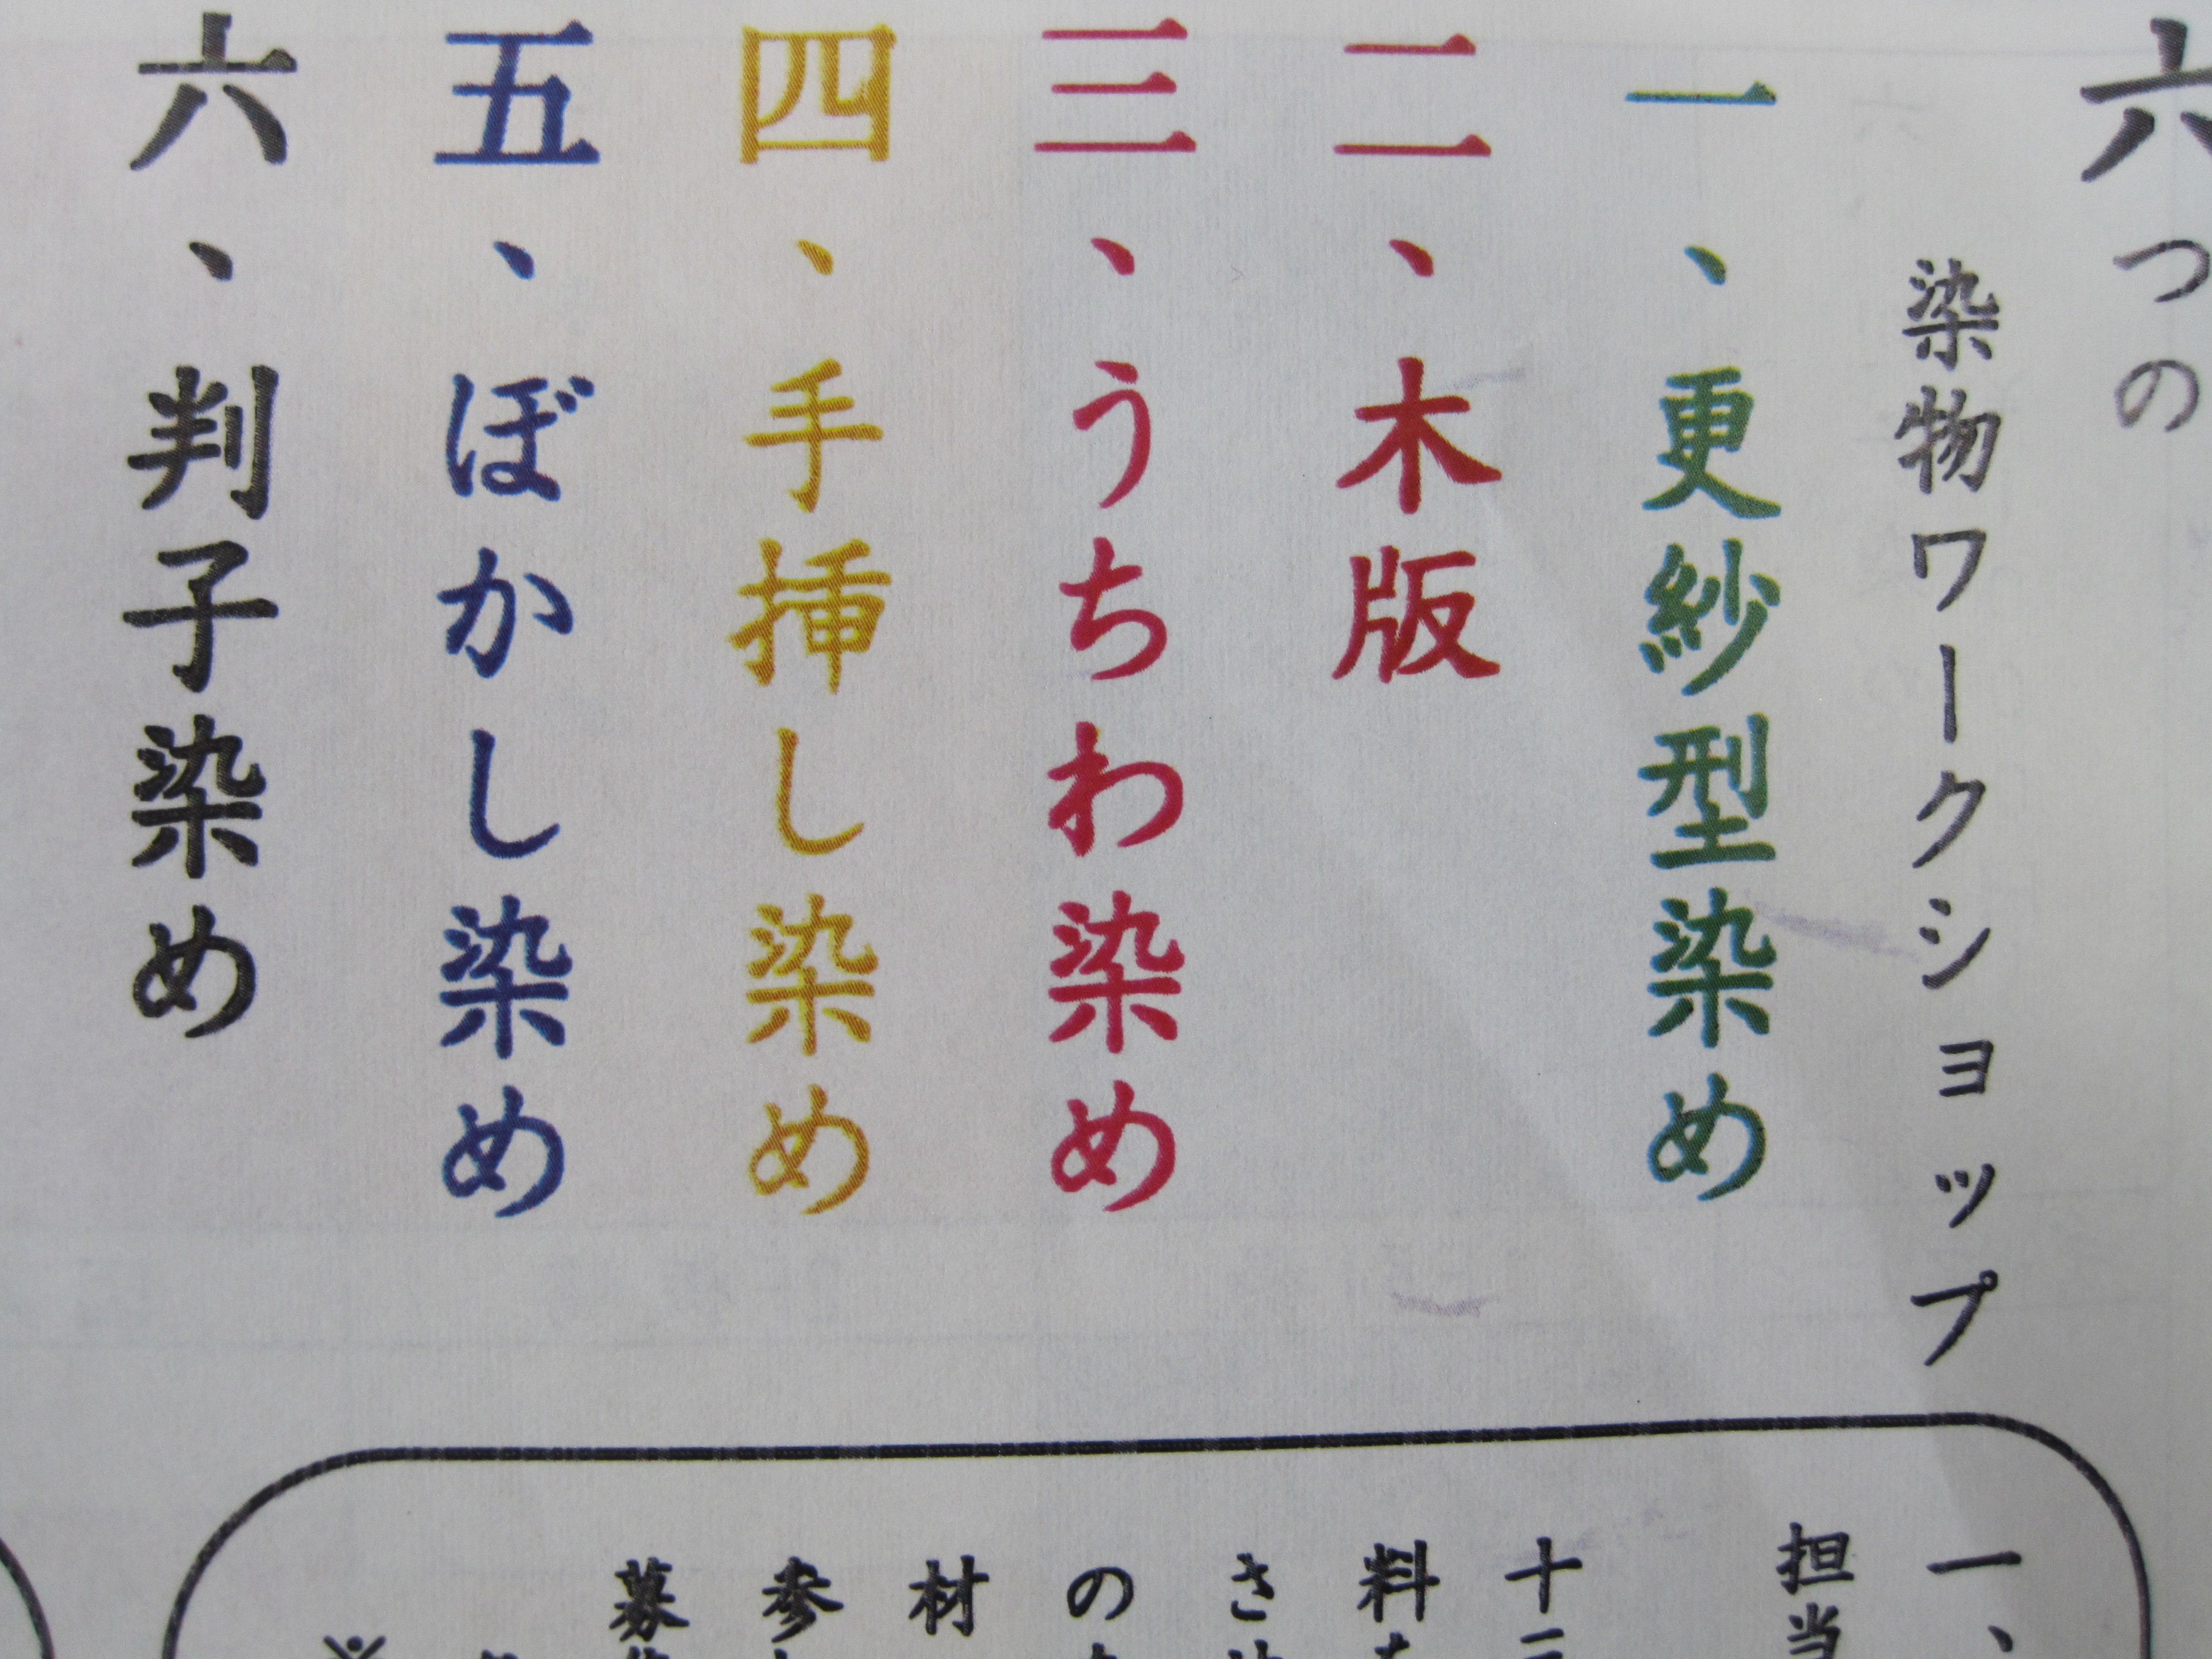 六つの
染物ワークショップ
一、更紗型染め
二、木版
三、うちわ染め
四、手挿し染め
五、ぼかし染め
六、判子染め
一、
担当
十二
料
さ
の
材
参
募
※